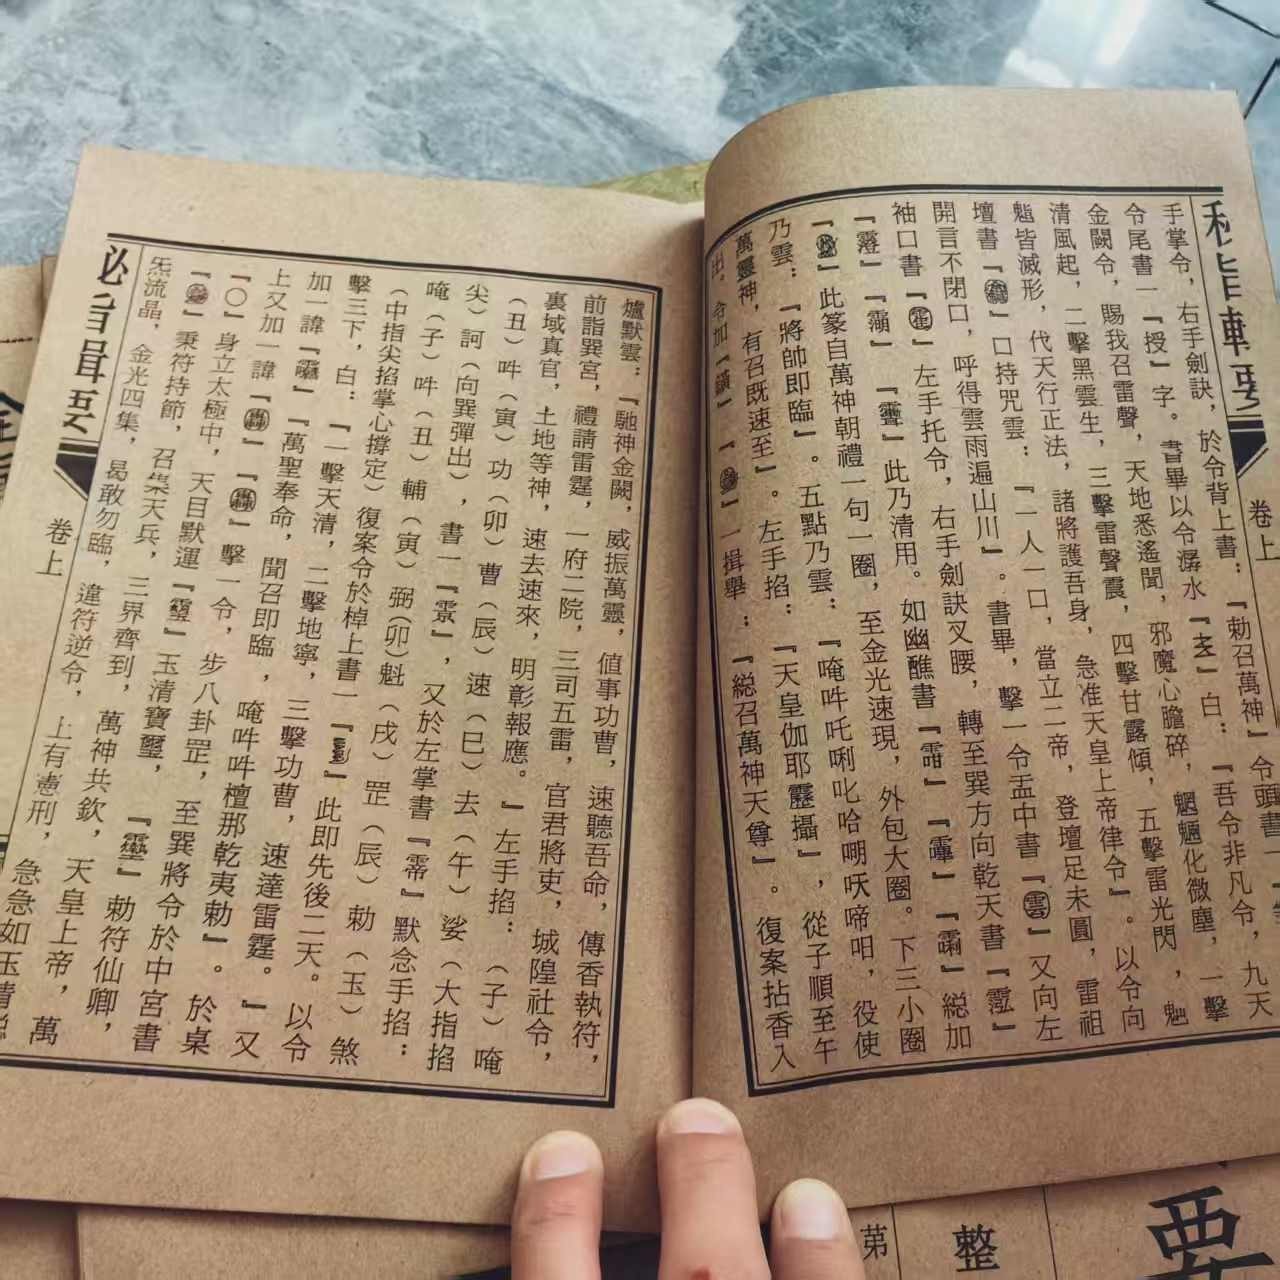 手掌令，右手劍訣，於令背上書：『勅召萬神』令頭書
令尾書一『授』字。書畢以令潺水『』白：『吾令非凡令，九天
金闕令，賜我召雷聲，天地悉遙聞，邪魔心膽碎，魍魎化微塵，一擊
清風起，二擊黑雲生，三擊雷聲震，四擊甘露傾，五擊雷光閃，魑
魅皆滅形，代天行正法，諸將護吾身，急准天皇上帝律令』。以令向
壇書『』口持咒雲：『一人一口，當立二帝，登壇足未圓，雷祖
開言不閉口，呼得雲雨遍山川』。書畢，擊一令盂中書『』又向左
袖口書『』左手托令，右手劍訣叉腰，轉至巽方向乾天書『』
『』『』『』此乃清用。如幽醮書『』『』『』總加
『』此篆自萬神朝禮一句一圈，至金光速現，外包大圈。下三小圈
乃雲：『將帥即臨』。五點乃雲：『唵吽吒唎叱哈㖿吠啼呬，役使
萬靈神，有召既速至』。左手掐：『天皇伽耶攝』，從子順至午
出，令加『』『』一揖舉：『總召萬神天尊』。復案拈香入
卷上
爐默雲：『馳神金闕，威振萬靈，值事功曹，速聽吾命，傳香執符，
前詣巽宮，禮請雷霆，一府二院，三司五雷，官君將吏，城隍社令，
裏域真官，土地等神，速去速來，明彰報應。』左手掐：（子）唵
（丑）吽（寅）功（卯）曹（辰）速（巳）去（午）娑（大指掐
尖）訶（向巽彈出），書一『』，又於左掌書『』默念手掐：
唵（子）吽（丑）輔（寅）弼（卯）魁（戌）罡（辰）勅（玉）煞
（中指尖掐掌心撐定）復案令於棹上書一『』此即先後二天。以令
擊三下，白：『一擊天清，二擊地寧，三擊功曹，速達雷霆。』又
加一諱『』『萬聖奉命，聞召即臨，唵吽吽檀那乾夷勅』。於桌
上又加一諱『』『』擊一令，步八卦罡，至巽將令於中宮書
『〇』身立太極中，天目默運『』玉清寶璽，『』勅符仙卿，
『』秉符持節，召集天兵，三界齊到，萬神共欽，天皇上帝，萬
炁流晶，金光四集，曷敢勿臨，違符逆令，上有憲刑，急急如玉清
卷上
整
要